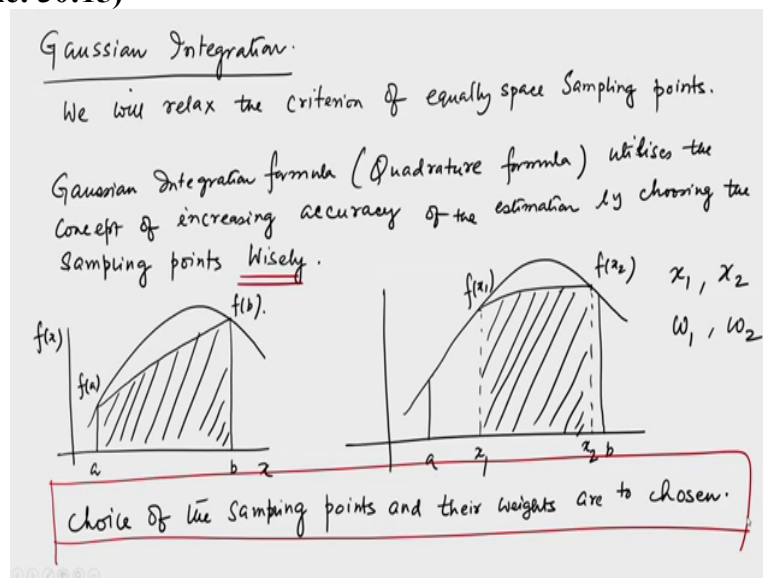 Gaussian Integration.
We will relax the criterion of equally space Sampling points.
Gaussian Integration formula (Quadrature formula) utilises the
Concept of increasing accuracy of the estimation by choosing the
Sampling points Wisely.
f(x)
f(a)
f(b).
a
b
x
f(x1)
f(x2)
x1, x2
w1, w2
a
x1
x2
b
Choice of the Sampling points and their weights are to chosen.